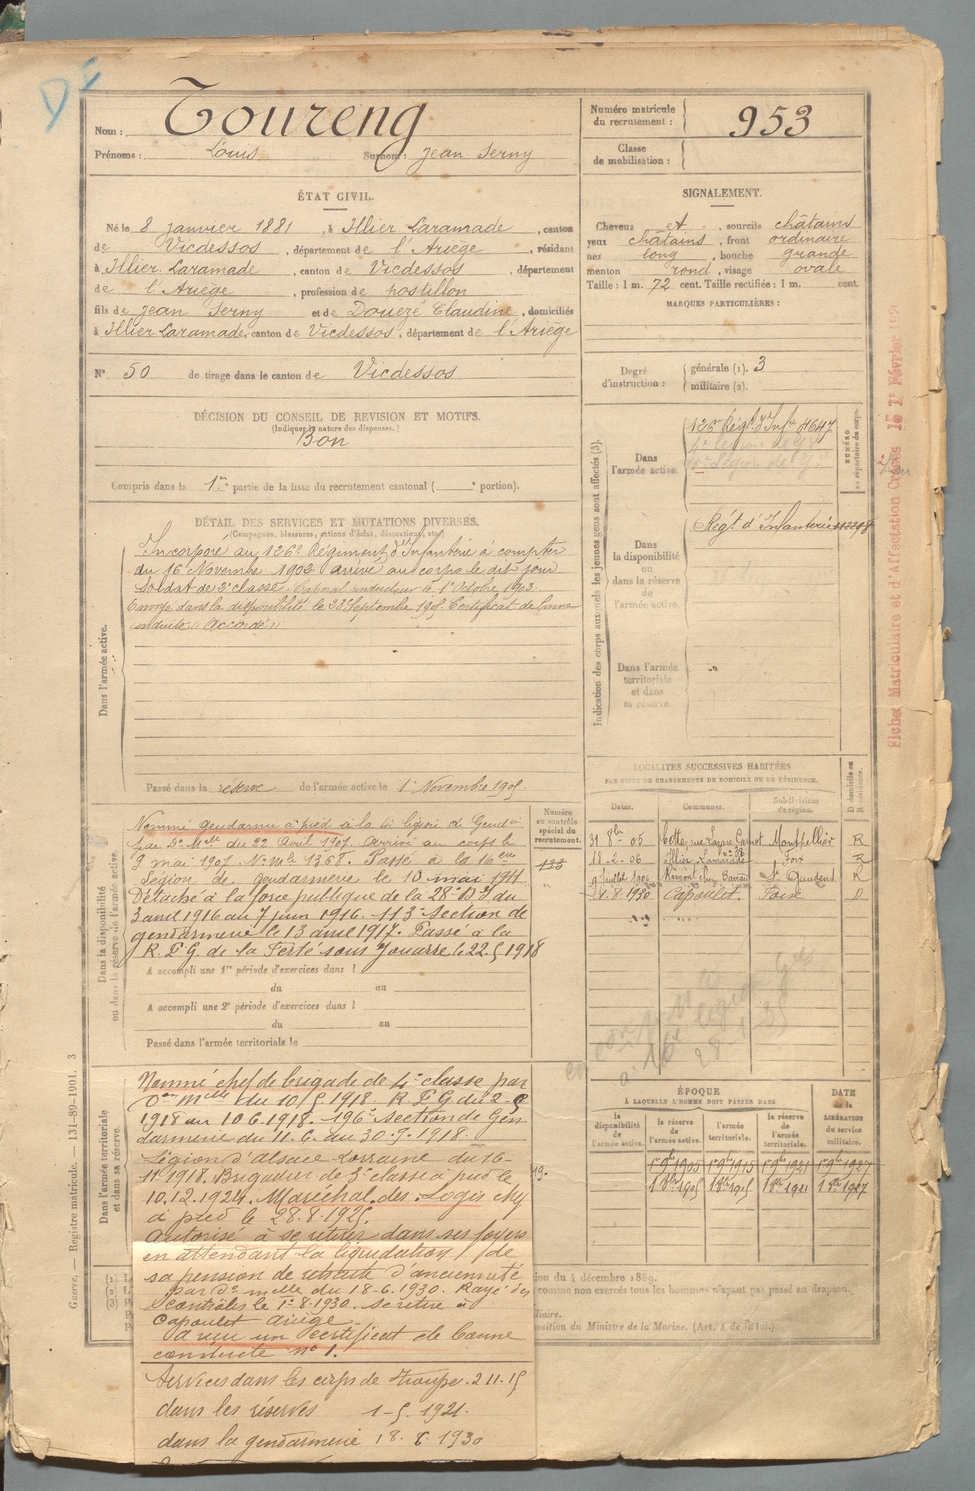 Nom : Toureng
Prénoms : Louis Surnom : Jean Serny
Numéro matricule du recrutement : 953
Classe de mobilisation :
ÉTAT CIVIL.
Né le 8 janvier 1881, à Illier Laramade, canton
de Vicdessos, département de l'Ariège, résidant
à Illier Laramade, canton de Vicdessos, département
de l'Ariège, profession de postillon
fils de Jean Serny et de Douezé Claudine, domiciliés
à Illier Laramade, canton de Vicdessos, département de l'Ariège
N° 50 de tirage dans le canton de Vicdessos
SIGNALEMENT.
Cheveux et, sourcils châtains
yeux châtains, front ordinaire
nez long, bouche grande
menton rond, visage ovale
Taille : 1 m. 72 cent. Taille rectifiée : 1 m. cent.
MARQUES PARTICULIÈRES :
Degré d'instruction : générale (1). 3
militaire (2).
DÉCISION DU CONSEIL DE REVISION ET MOTIFS.
(Indiquer la nature des dispenses.)
Bon
Compris dans la 1re partie de la liste du recrutement cantonal ( e portion).
DÉTAIL DES SERVICES ET MUTATIONS DIVERSES.
(Campagnes, blessures, actions d'éclat, décorations, etc.)
Dans l'armée active.
Incorporé au 126e Régiment d'Infanterie à compter
du 16 Novembre 1902. arrivé au corps le dit jour
Soldat de 2e classe. Caporal le 1er Octobre 1903.
Envoyé dans la disponibilité le 23 Septembre 1905. Certificat de bonne
conduite "Accordé"
Passé dans la réserve de l'armée active le 1er Novembre 1905.
Indication des corps auxquels les jeunes gens sont affectés (3).
NUMÉRO au répertoire du corps.
Dans l'armée active.
126e Régt d'Infie 4647
Dans la disponibilité ou dans la réserve de l'armée active.
Régt d'Infanterie
Dans l'armée territoriale et dans sa réserve.
Fiches Matriculaire et d'Affectation Créées le 1r Février
LOCALITÉS SUCCESSIVES HABITÉES
PAR SUITE DE CHANGEMENTS DE DOMICILE OU DE RÉSIDENCE.
Dates. Communes. Subdivisions de région. D domicile ou R résidence.
31 8bre 05 Cette, rue Lazare Carnot n° 38 Montpellier R
18-2-06 Illier Laramade Foix R
9 juillet 1906 St Quentin R
1.8.1930 Capoulet. Foix D
Dans la disponibilité ou dans la réserve de l'armée active.
Numéro au contrôle spécial du recrutement.
133
Nommé gendarme à pied à la
par Don Melle du 22 Avril 1907. Arrivé au corps le
9 mai 1907. N° Mle 1368. Passé à la 16eme
Légion de gendarmerie le 10 mai 1911
Détaché à la force publique de la 28e Don du
3 avril 1916 au 7 juin 1916. 113e Section de
gendarmerie le 13 avril 1917. Passé à la
R. P. G. de la Ferté sous Jouarre le 22.5 1918
A accompli une 1re période d'exercices dans l
du au
A accompli une 2e période d'exercices dans l
du au
Passé dans l'armée territoriale le
Dans l'armée territoriale et dans sa réserve.
Nommé chef de brigade de 4e classe par
Don Melle du 10/5 1918. R P G du
1918 au 10.6.1918. 196e section de Gen
darmerie du 11.6. au 30.9.1918.
Légion d'Alsace Lorraine du 16-
11.1918. Brigadier de 3e classe à pied le
10.12.1924. Maréchal des Logis chef
à pied le 28.8.1925.
Autorisé à se retirer dans ses foyers
en attendant la liquidation de
sa pension de retraite d'ancienneté
par Don Melle du 18-6.1930. Rayé des
contrôles le 1er 8.1930. se retire à
Capoulet Ariège
A reçu un certificat de bonne
conduite n° 1.
Services dans les corps de troupe. 2.11.15
dans les réserves 1-5. 1921.
dans la gendarmerie 18. 6 1930
ÉPOQUE
À LAQUELLE L'HOMME DOIT PASSER DANS
la disponibilité de l'armée active. la réserve de l'armée active. l'armée territoriale. la réserve de l'armée territoriale.
DATE de la LIBÉRATION du service militaire.
1er 9bre 1905 1er 9bre 1915 1er 9bre 1921 1er 9bre 1927
Guerre. — Registre matricule. 131-89-1901. 3
(1)
(2)
(3)
ion du 4 décembre 1889.
comme non exercés tous les hommes n'ayant pas passé au drapeau.
iliaire.
position du Ministre de la Marine. (Art. 4 de la loi.)